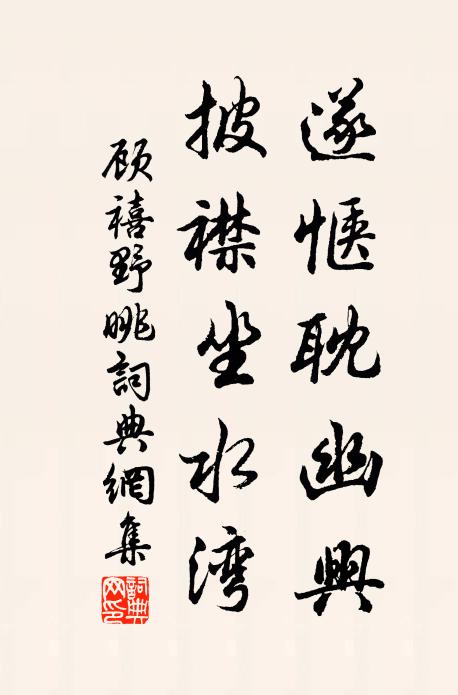 遂惬耽幽興
披襟坐水湾
顾禧野眺詞典網集
詞典網印